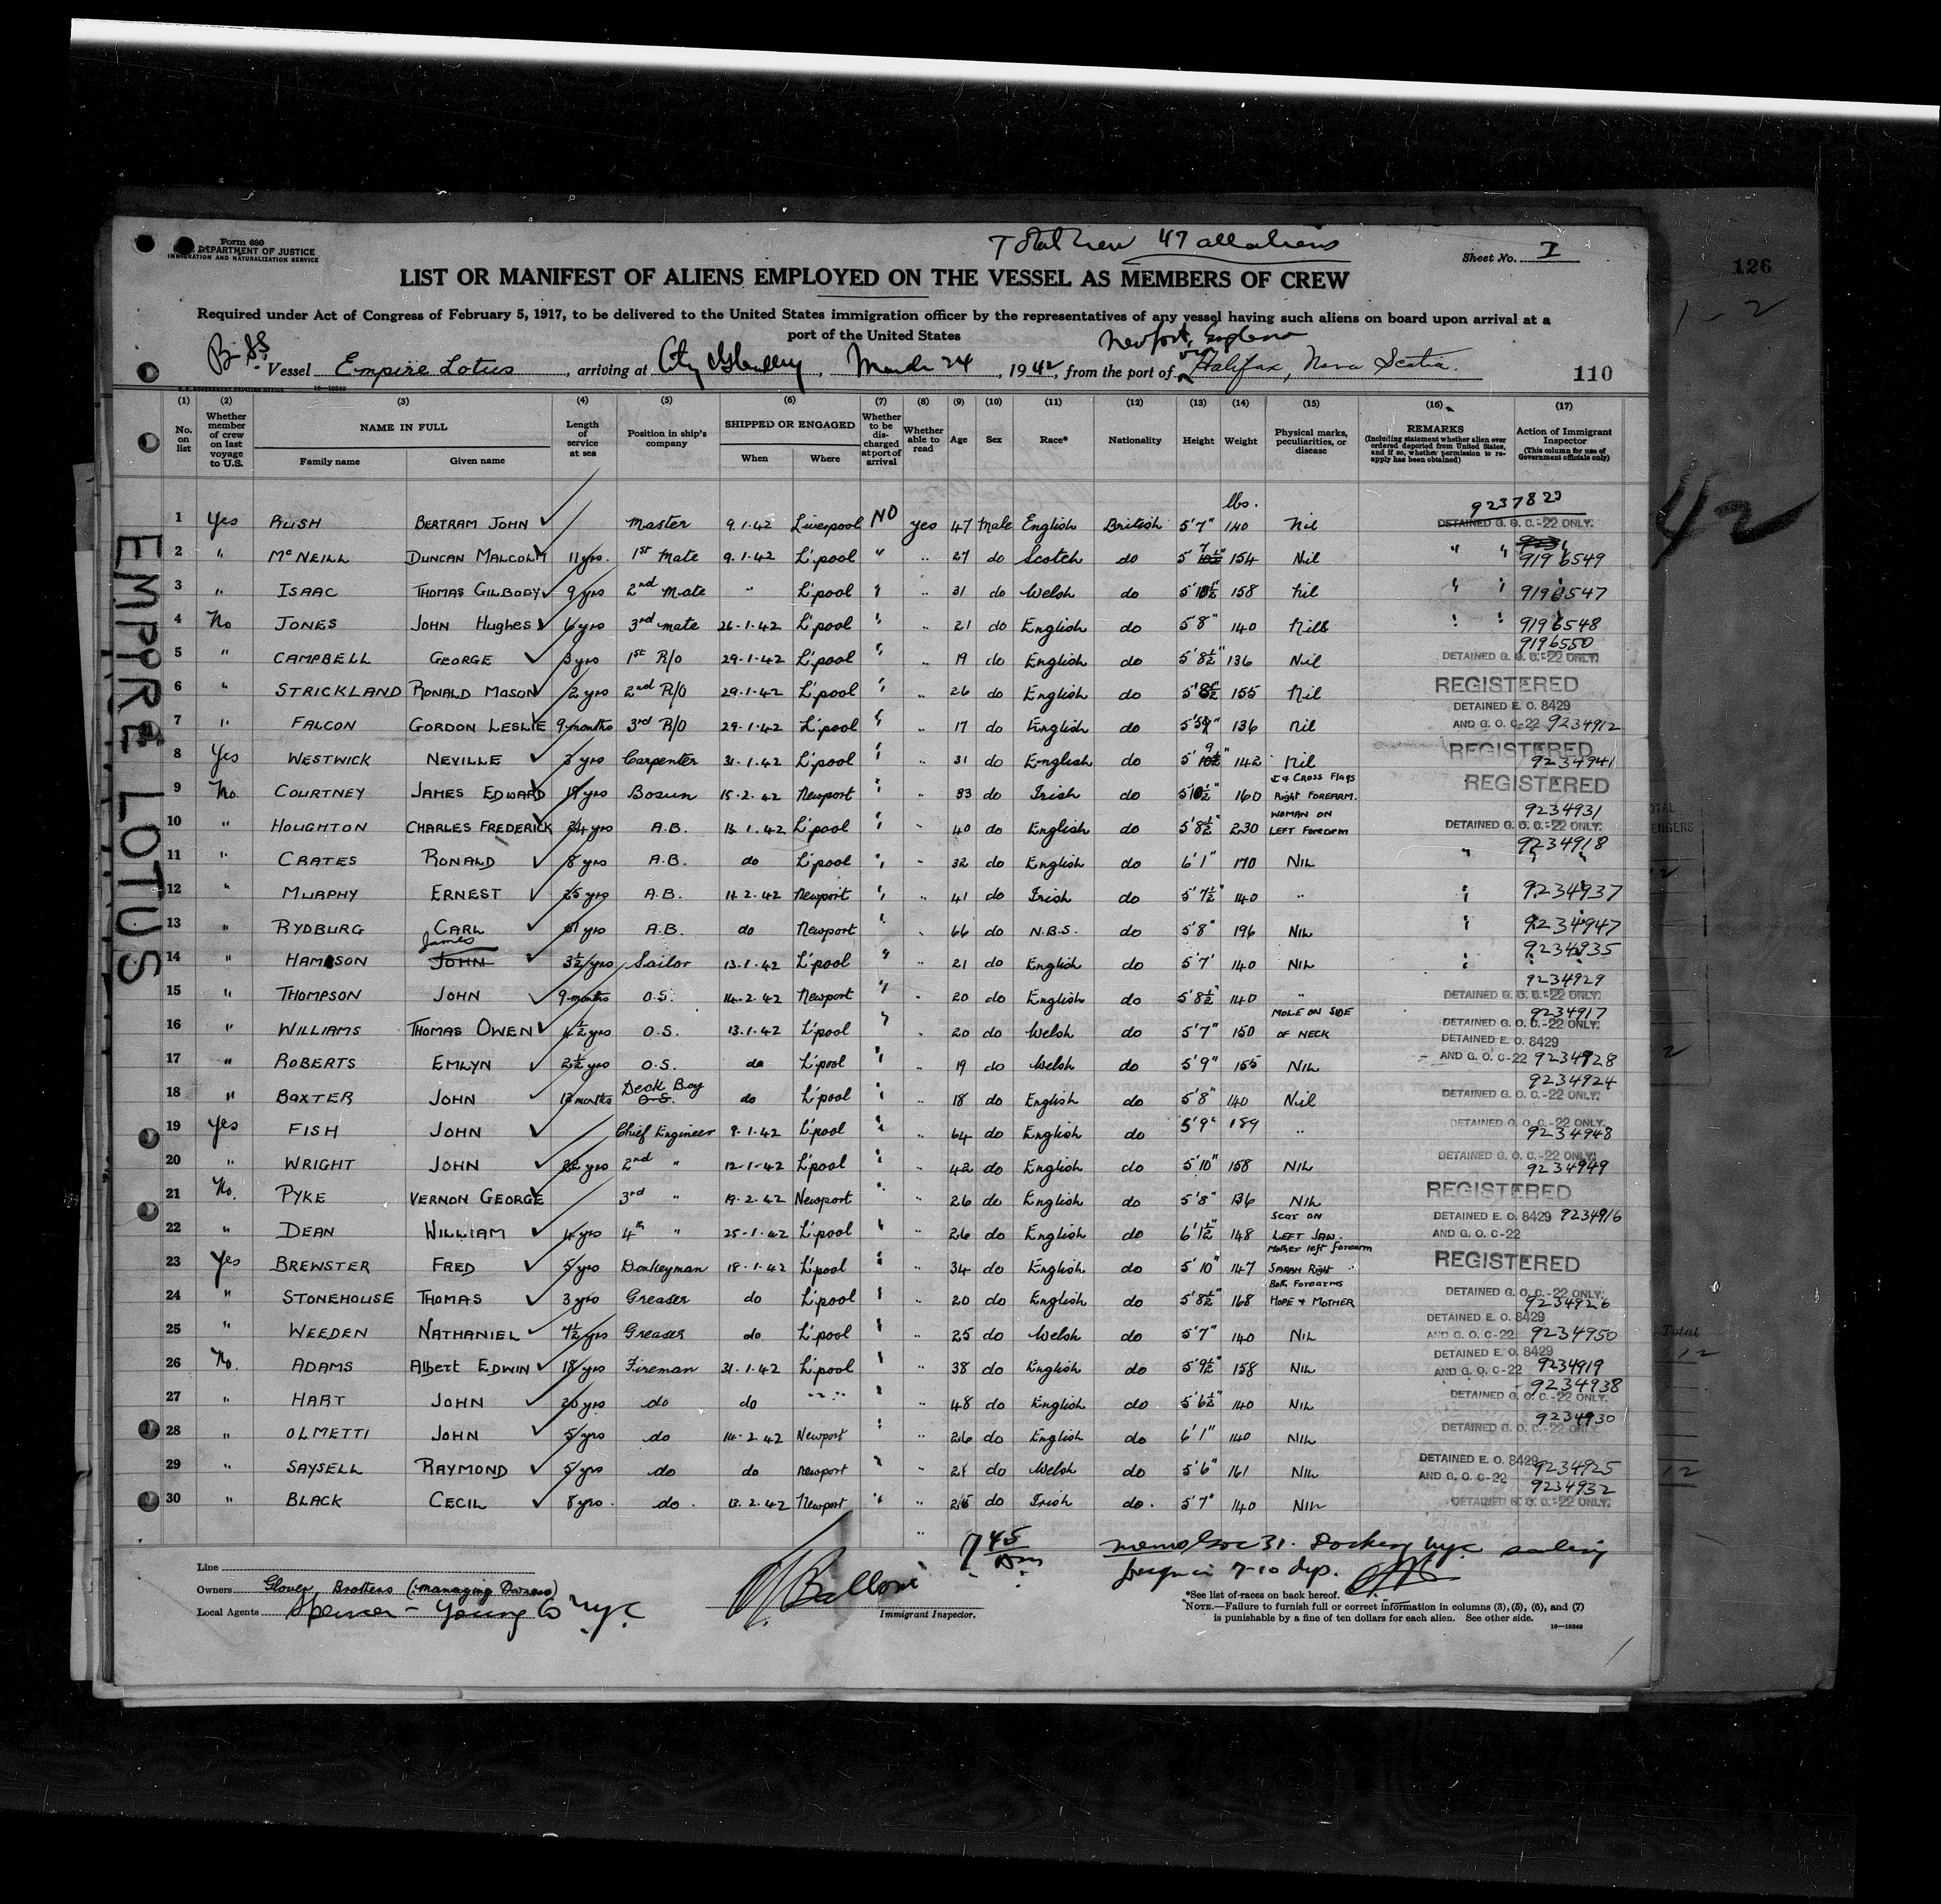 Form 680
DEPARTMENT OF JUSTICE
IMMIGRATION AND NATURALIZATION SERVICE
Total crew 47 all aliens
Sheet No. I
LIST OR MANIFEST OF ALIENS EMPLOYED ON THE VESSEL AS MEMBERS OF CREW
Required under Act of Congress of February 5, 1917, to be delivered to the United States immigration officer by the representatives of any vessel having such aliens on board upon arrival at a
port of the United States
Newport, England
Br SS. Vessel Empire Lotus, arriving at City, March 24, 1942, from the port of via Halifax, Nova Scotia.
110
126
42
EMPIRE LOTUS
(1) (2) (3) (4) (5) (6) (7) (8) (9) (10) (11) (12) (13) (14) (15) (16) (17)
No. on list
Whether member of crew on last voyage to U.S.
NAME IN FULL
Family name Given name
Length of service at sea
Position in ship's company
SHIPPED OR ENGAGED
When Where
Whether to be discharged at port of arrival
Whether able to read
Age Sex Race* Nationality Height Weight
Physical marks, peculiarities, or disease
REMARKS
(Including statement whether alien ever ordered deported from United States, and if so, whether permission to reapply has been obtained)
Action of Immigrant Inspector
(This column for use of Government officials only)
lbs.
1 Yes RUSH BERTRAM JOHN Master 9.1.42 Liverpool NO yes 47 Male English British 5'7" 140 Nil 9237822 DETAINED G. O. C-22 ONLY.
2 " McNEILL DUNCAN MALCOLM 11 yrs. 1st Mate 9.1.42 L'pool " " 27 do Scotch do 5'7" 154 Nil " " 9196549
3 " ISAAC THOMAS GILBODY 9 yrs 2nd Mate " L'pool " " 31 do Welsh do 5'10½ 158 Nil " " 9196547
4 No JONES JOHN Hughes 6 yrs 3rd mate 26-1-42 L'pool " " 21 do English do 5'8" 140 Nil " " 9196548
5 " CAMPBELL GEORGE 3 yrs 1st R/O 29-1-42 L'pool " " 19 do English do 5'8½" 136 Nil 9196550 DETAINED G. O. C-22 ONLY.
6 " STRICKLAND RONALD MASON 2 yrs 2nd R/O 29-1-42 L'pool " " 26 do English do 5'8½" 155 Nil REGISTERED
7 " FALCON GORDON LESLIE 9 months 3rd R/O 29-1-42 L'pool " " 17 do English do 5'9" 136 Nil DETAINED E. O. 8429 AND G. O. C-22 9234912
8 Yes WESTWICK NEVILLE 3 yrs Carpenter 31-1-42 L'pool " " 31 do English do 5'9" 142 Nil REGISTERED 9234941
9 No. COURTNEY JAMES EDWARD 19 yrs Bosun 15-2-42 Newport " " 33 do Irish do 5'10½" 160 CROSS Flags Right FOREARM. REGISTERED
10 " HOUGHTON CHARLES FREDERICK 24 yrs A.B. 13.1.42 L'pool " " 40 do English do 5'8½" 230 WOMAN ON LEFT Forearm 9234931 DETAINED G. O. C-22 ONLY.
11 " CRATES RONALD 8 yrs A.B. do L'pool " " 32 do English do 6'1" 170 NIL " 9234918
12 " MURPHY ERNEST 25 yrs A.B. 14.2.42 Newport " " 41 do Irish do 5'7½" 140 " " 9234937
13 " RYDBURG CARL yrs A.B. do Newport " " 66 do N.B.S. do 5'8" 196 NIL " 9234947
14 " HAMPSON James JOHN 3½ yrs Sailor 13.1.42 L'pool " " 21 do English do 5'7" 140 NIL " 9234935
15 " THOMPSON JOHN 9 months O.S. 14-2-42 Newport " " 20 do English do 5'8½" 140 " 9234929 DETAINED G. O. C-22 ONLY.
16 " WILLIAMS THOMAS OWEN 4½ yrs O.S. 13.1.42 L'pool " " 20 do Welsh do 5'7" 150 MOLE ON SIDE OF NECK 9234917 DETAINED G. O. C-22 ONLY.
17 " ROBERTS EMLYN 2½ yrs O.S. do L'pool " " 19 do Welsh do 5'9" 155 NIL DETAINED E. O. 8429 AND G. O. C-22 9234928
18 " BAXTER JOHN months Deck Boy O.S. do L'pool " " 18 do English do 5'8" 140 Nil 9234924 DETAINED G. O. C-22 ONLY.
19 Yes FISH JOHN Chief Engineer 9.1.42 L'pool " " 64 do English do 5'9" 189 " DETAINED G. O. C-22 ONLY. 9234948
20 " WRIGHT JOHN 22 yrs 2nd " 12-1-42 L'pool " " 42 do English do 5'10" 158 NIL DETAINED G. O. C-22 ONLY. 9234949
21 No. PYKE VERNON GEORGE 3rd " 19.2.42 Newport " " 26 do English do 5'8" 136 NIL REGISTERED
22 " DEAN WILLIAM 4 yrs 4th " 25-1-42 L'pool " " 26 do English do 6'1½" 148 SCAR ON LEFT JAW. DETAINED E. O. 8429 9234916 AND G. O. C-22
23 Yes BREWSTER FRED 5 yrs Donkeyman 18-1-42 L'pool " " 34 do English do 5'10" 147 Mother left forearm SARAH Right " REGISTERED
24 " STONEHOUSE THOMAS 3 yrs Greaser do L'pool " " 20 do English do 5'8½" 168 Both Forearms HOPE & MOTHER DETAINED G. O. C-22 ONLY. 9234926
25 " WEEDEN NATHANIEL 7½ yrs Greaser do L'pool " " 25 do Welsh do 5'7" 140 NIL DETAINED E. O. 8429 AND G. O. C-22 9234950
26 No. ADAMS Albert EDWIN 18 yrs Fireman 31-1-42 L'pool " " 38 do English do 5'9½" 158 NIL DETAINED E. O. 8429 AND G. O. C-22 9234919
27 " HART JOHN 20 yrs do do " " " " 48 do English do 5'6½" 140 NIL 9234938 DETAINED G. O. C-22 ONLY.
28 " OLMETTI JOHN 5 yrs do 14-2-42 Newport " " 26 do English do 6'1" 140 NIL 9234930 DETAINED G. O. C-22 ONLY.
29 " SAYSELL RAYMOND 5 yrs do do newport " " 21 do Welsh do 5'6" 161 NIL DETAINED E. O. 8429 AND G. O. C-22 9234925
30 " BLACK CECIL 8 yrs. do. 13.2.42 Newport " " do Irish do. 5'7" 140 NIL 9234932 DETAINED G. O. C-22 ONLY.
7 45 Am
31. Dockery NYC
7-10 dys.
Line
Owners Glover Brothers (Managing Owners)
Local Agents Spencer - Young Co NYC
Immigrant Inspector.
*See list of races on back hereof.
NOTE.—Failure to furnish full or correct information in columns (3), (5), (6), and (7)
is punishable by a fine of ten dollars for each alien. See other side.
16—19349
Total